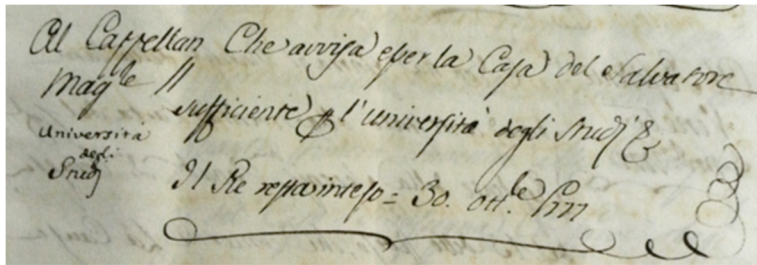 Al Cappellan Che avvisa esser la Casa del Salvatore
Magle //
sufficiente p l'università degli Studj &
Università
degli
Studj
Il Re resta inteso = 30. ottle 1777